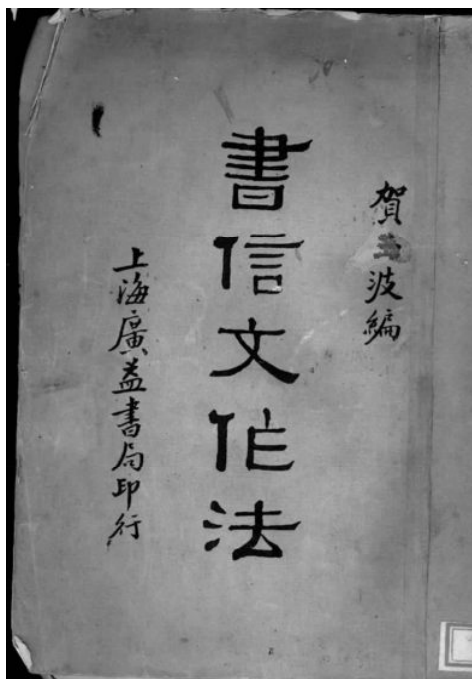 賀玉波編
書信文作法
上海廣益書局印行